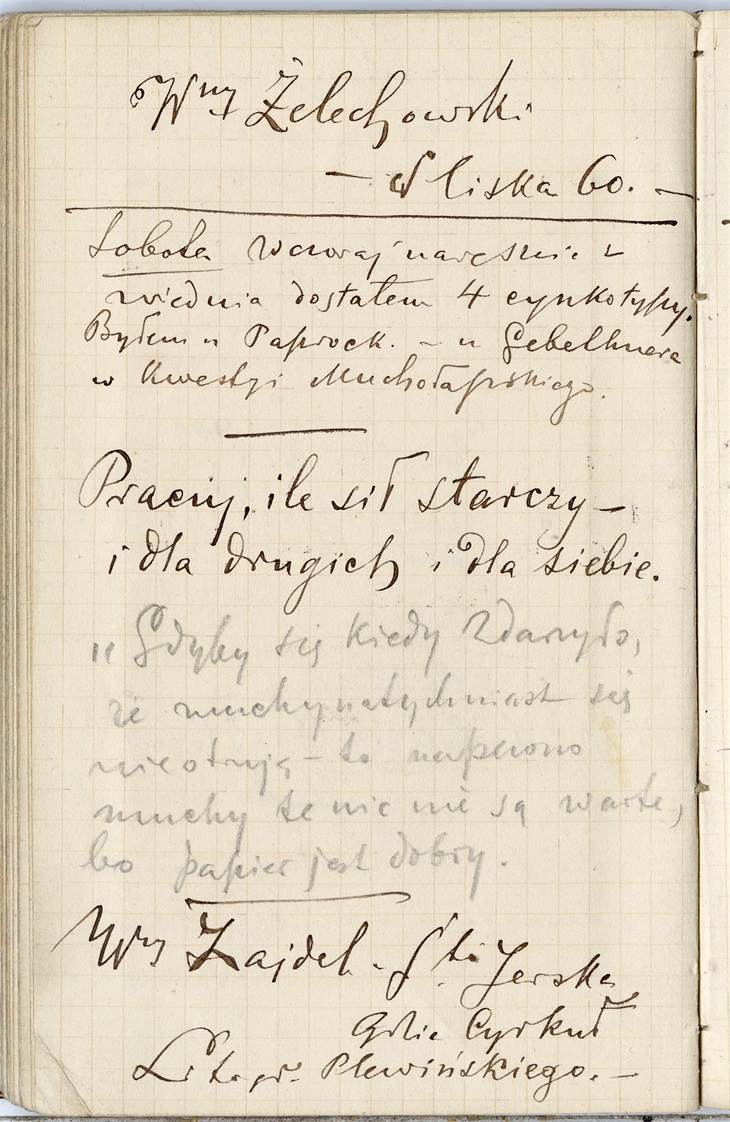 Wny Żelechowski
— Śliska 60. —
Sobota Wczoraj nareszcie z
Wiednia dostałem 4 cynkotypy.
Byłem u Paprock. – u Gebethnera
w kwestyi Muchołapskiego.
Pracuj, ile sił starczy –
i dla drugich i dla siebie.
„Gdyby się kiedy zdarzyło,
że muchy natychmiast się
nie otrują – to napewno
muchy te nic nie są warte,
bo papier jest dobry.
Wny Zajdel – Sto Jerska
gdzie Cyrkuł
Litogr. Plewińskiego. —